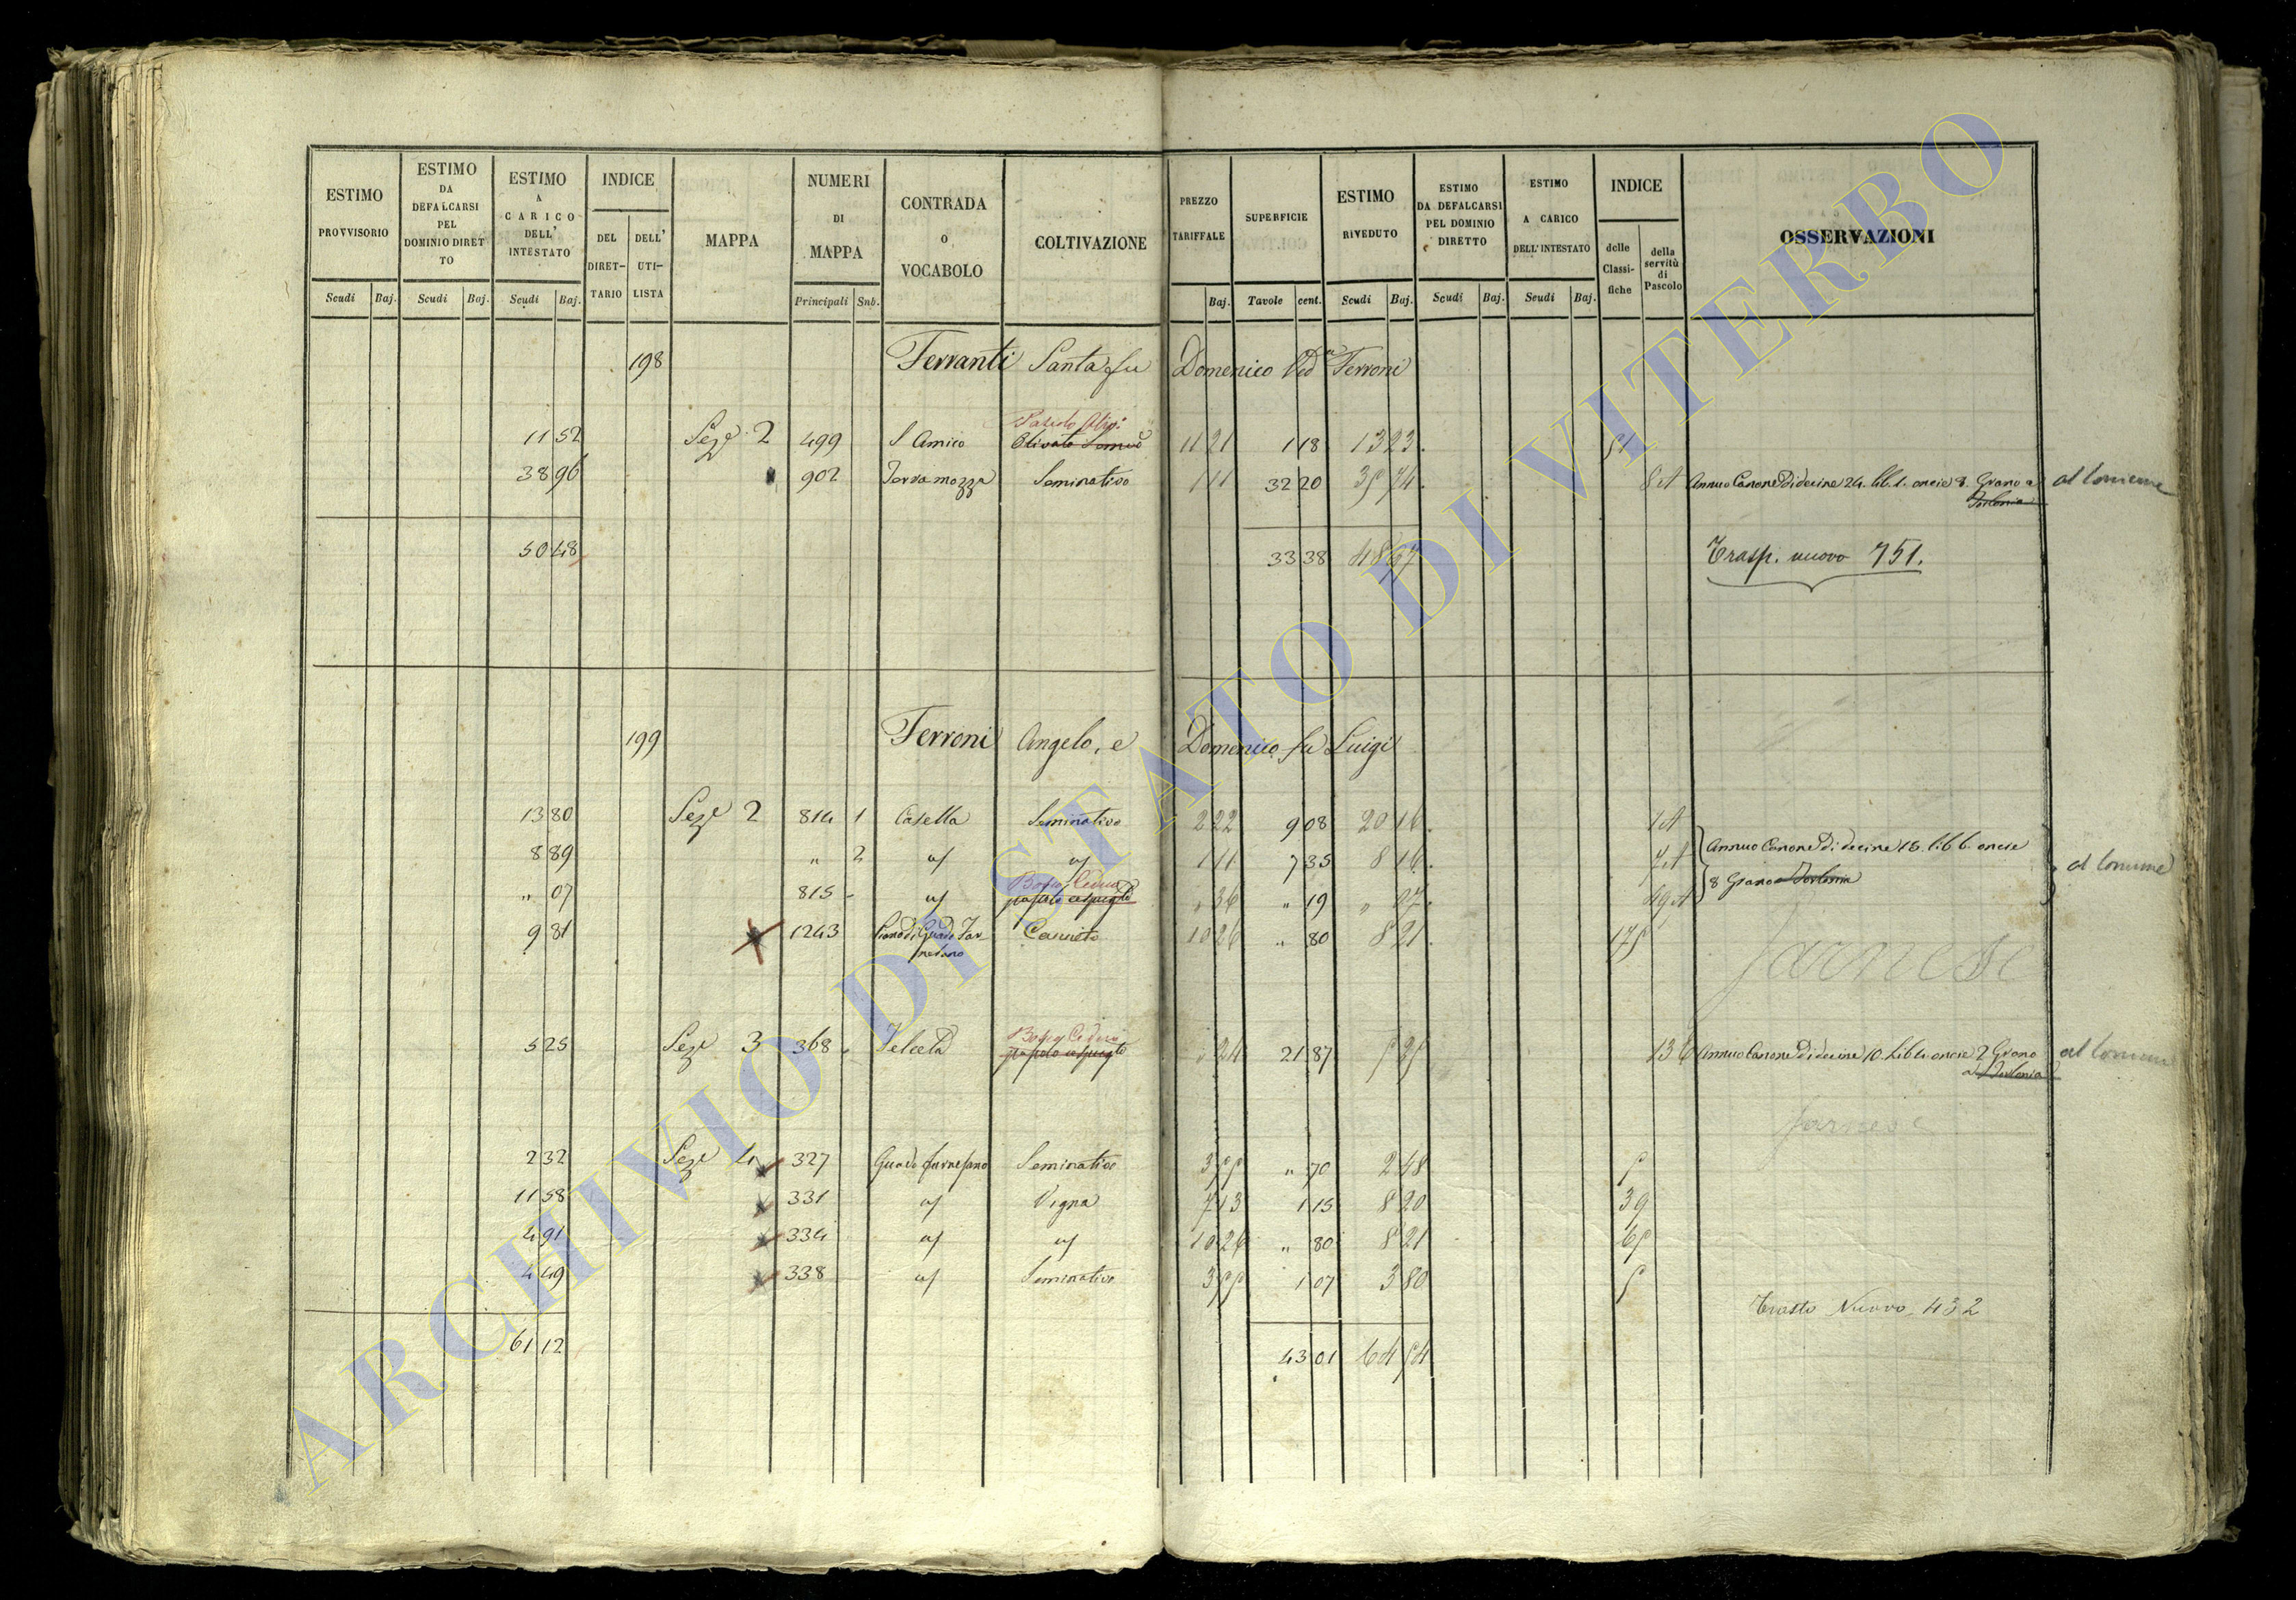 ESTIMO PROVVISORIO
ESTIMO DA DEFALCARSI PEL DOMINIO DIRETTO
ESTIMO A CARICO DELL' INTESTATO
INDICE
DEL DIRETTARIO
DELL' UTILISTA
MAPPA
NUMERI DI MAPPA
CONTRADA O VOCABOLO
COLTIVAZIONE
PREZZO TARIFFALE
SUPERFICIE
ESTIMO RIVEDUTO
ESTIMO DA DEFALCARSI PEL DOMINIO DIRETTO
ESTIMO A CARICO DELL' INTESTATO
INDICE
delle Classifiche
della servitù di Pascolo
OSSERVAZIONI
Scudi Baj. Scudi Baj. Scudi Baj. Principali Sub. Baj. Tavole cent. Scudi Baj. Scudi Baj. Scudi Baj.
198 Ferranti Santa fu Domenico Ved.a Ferroni
Pascolo Olivi
11 52 Seze 2 499 S Amico Olivato 11 21 1 18 13 23 51
38 96 902 Terramozza Seminativo 1 11 32 20 35 74 8 A Annuo Canone Di decine 24. lib. 1. oncie 8. Grano a al Comune
Torlonia
50 48 33 38 48 97 Trasp. nuovo 751.
199 Ferroni Angelo, e Domenico fu Luigi
13 80 Seze 2 814 1 Casella Seminativo 2 22 9 08 20 16 1 A
8 89 " 2 " " 1 11 7 35 8 16 7 A Annuo Canone Di decine 15. lib 6. oncie
al Comune
Bosco Ceduo
" 07 815 " pascolo cespugto " 36 " 19 " 07 49 A 8 Grano a Torlonia
9 81 1243 Piano di Guado Farnesano Canneto 10 26 " 80 8 21 175
Farnese
Bosco Ceduo
5 25 Seze 3 368 Selceta pascolo cespugto " 24 21 87 5 25 13 Annuo Canone Di decine 10. Lib 4. oncie 2 Grano al Comune
a Torlonia
Farnese
2 32 Seze 4 327 Guado farnesano Seminativo 3 55 " 70 2 48 5
11 58 331 " Vigna 7 13 1 15 8 20 39
4 91 334 " " 10 26 " 80 8 21 65
4 49 338 " Seminativo 3 55 1 07 3 80 5
Trasto Nuovo 432
61 12 43 01 64 54
ARCHIVIO DI STATO DI VITERBO